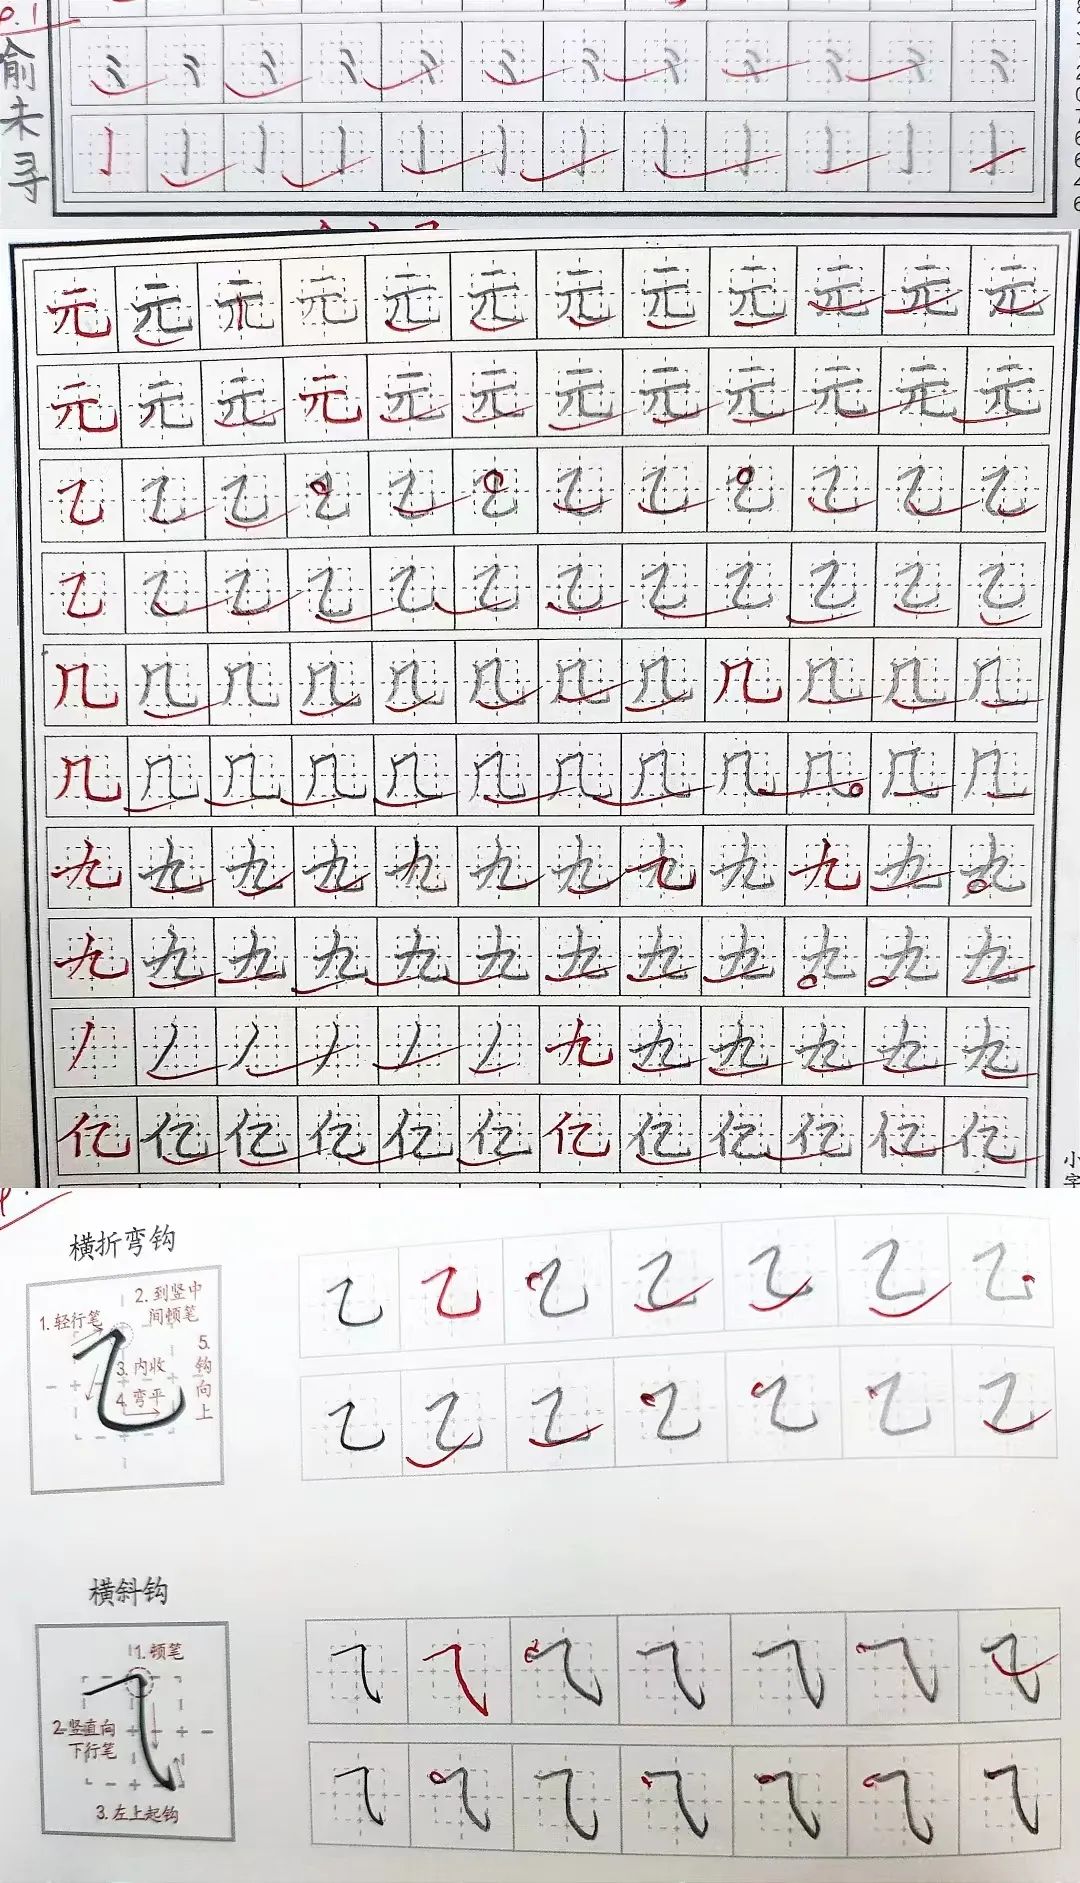 俞未寻
亅亅亅亅亅亅亅亅亅亅亅亅
元元元元元元元元元元元元
元元元元元元元元元元元元
乙乙乙乙乙乙乙乙乙乙乙乙
乙乙乙乙乙乙乙乙乙乙乙乙
几几几几几几几几几几几几
几几几几几几几几几几几几
九九九九九九九九九九九九
九九九九九九九九九九九九
丿丿丿丿丿丿九九九九九九
亿亿亿亿亿亿亿亿亿亿亿亿
小字
横折弯钩
1.轻行笔
2.到竖中
间顿笔
3.内收
4.弯平
5.钩向上
乙乙乙乙乙乙乙
乙乙乙乙乙乙乙
横斜钩
1.顿笔
2.竖直向
下行笔
3.左上起钩
⺄⺄⺄⺄⺄⺄⺄
⺄⺄⺄⺄⺄⺄⺄